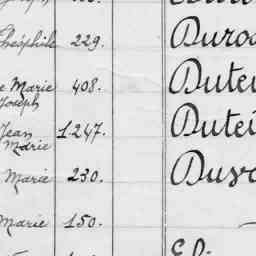 Théophile 229. Duro
Marie Joseph 408. Dute
Jean Marie 1247. Dutei
Marie 230. Duv
Marie 150.